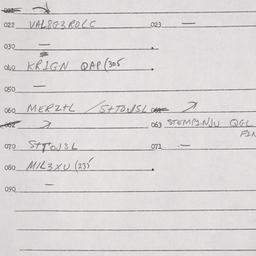 022 VAL8G3ROLC 023 —
030 —
040 KR1GN QAP(305
050 —
060 MERZ+L / S+TOJSL
063 STEMP2N)U QGL
070 S+TOJ3L 071 —
080 M1L3XU (235
090 —